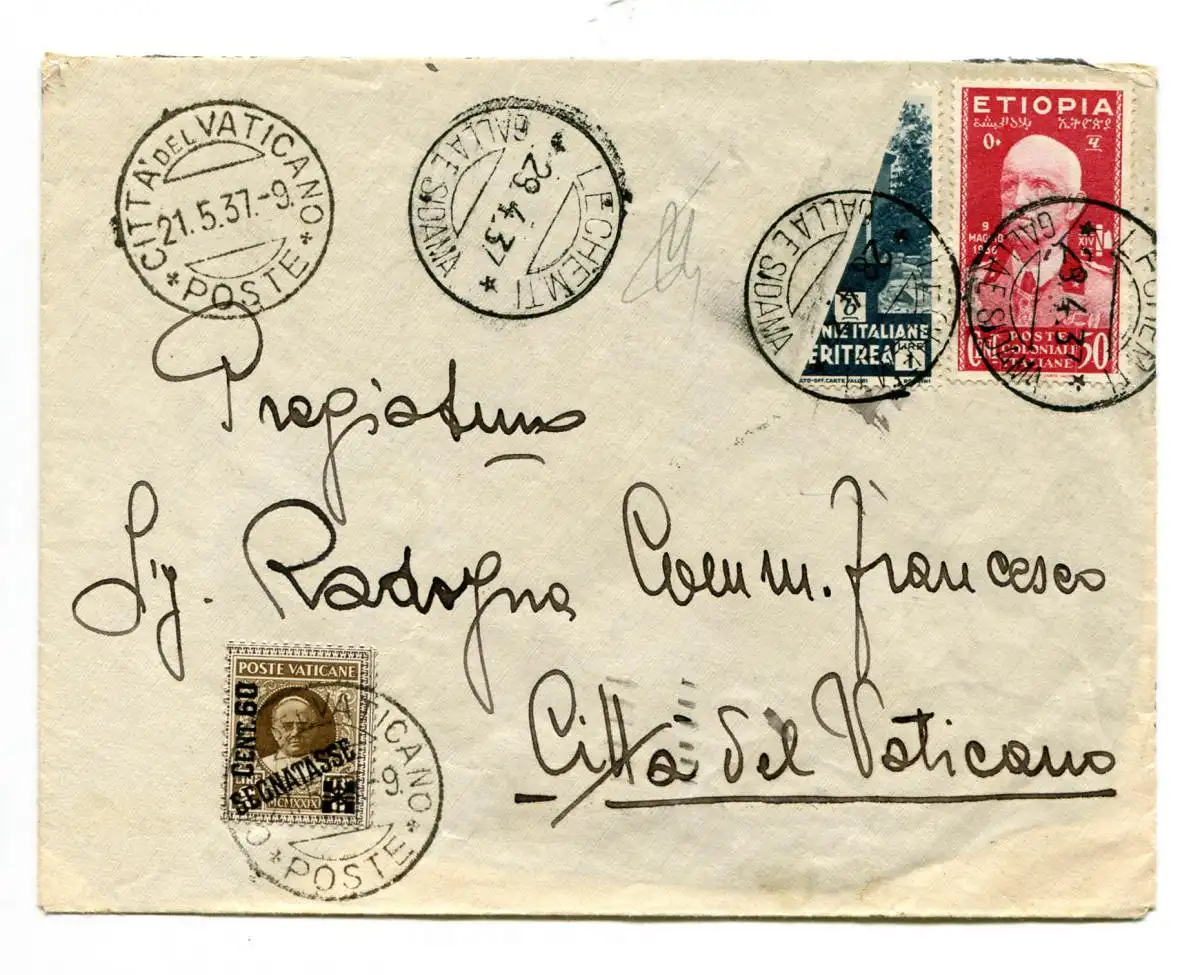 CITTÀ DEL VATICANO
21.5.37.-9.
* POSTE *
LECHEMTI
* 29.4.37 *
GALLA E SIDAMA
ETIOPIA
ኢትዮጵያ
9
MAGGIO
1936
XIV
POSTE
COLONIALI
ITALIANE
50
29.4.37 *
NIE ITALIANE
ERITREA
LIRE
1
GALLA E SIDAMA
Pregiatmo
Sig. Radogna Comm. Francesco
Città del Vaticano
POSTE VATICANE
CENT.60
SEGNATASSE
MCMXXIX
VATICANO
9.
* POSTE *